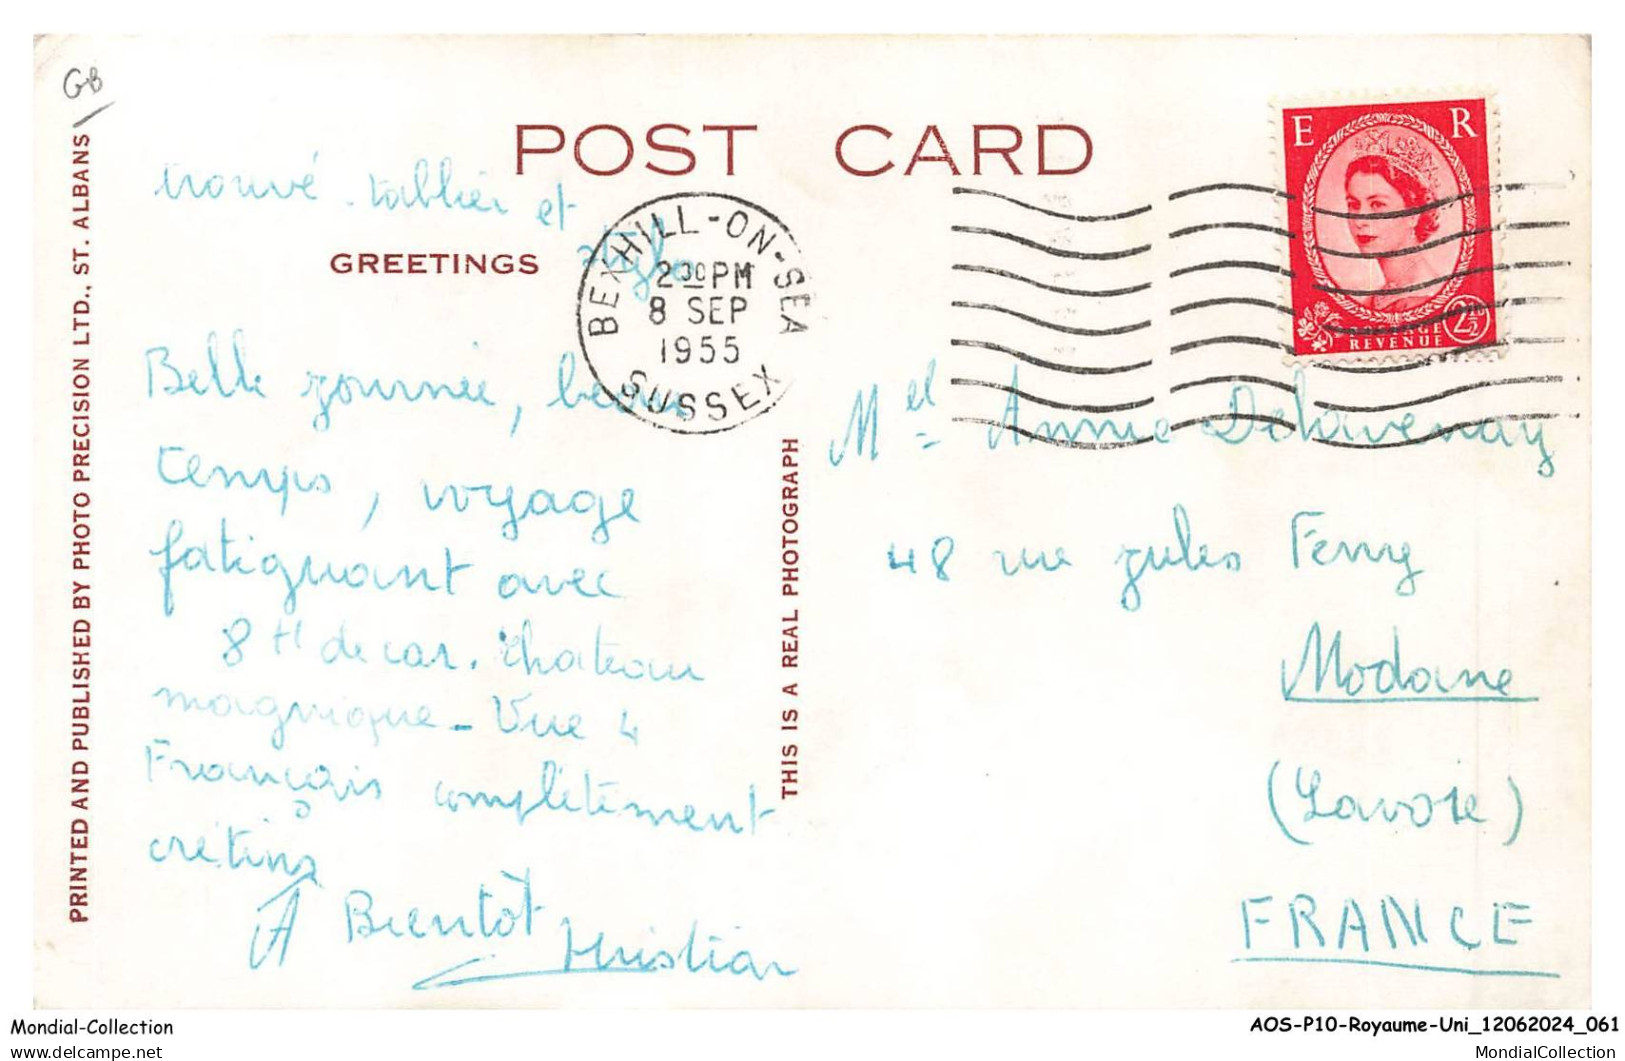 GB
POST CARD
E R
trouvé tablier et
stylo
GREETINGS
BEXHILL-ON-SEA
2 30 PM
8 SEP
1955
SUSSEX
POSTAGE
REVENUE 2½D
PRINTED AND PUBLISHED BY PHOTO PRECISION LTD., ST. ALBANS
THIS IS A REAL PHOTOGRAPH
Belle journée, beau
temps, voyage
fatiguant avec
8 H de car. Chateau
magnique - Vue 4
Français complètement
crétins
A Bientôt Christian
Mel Annie Delavenay
48 rue Jules Ferry
Modane
(Savoie)
FRANCE
Mondial-Collection
AOS-P10-Royaume-Uni_12062024_061
mondial-collection.delcampe.net
MondialCollection